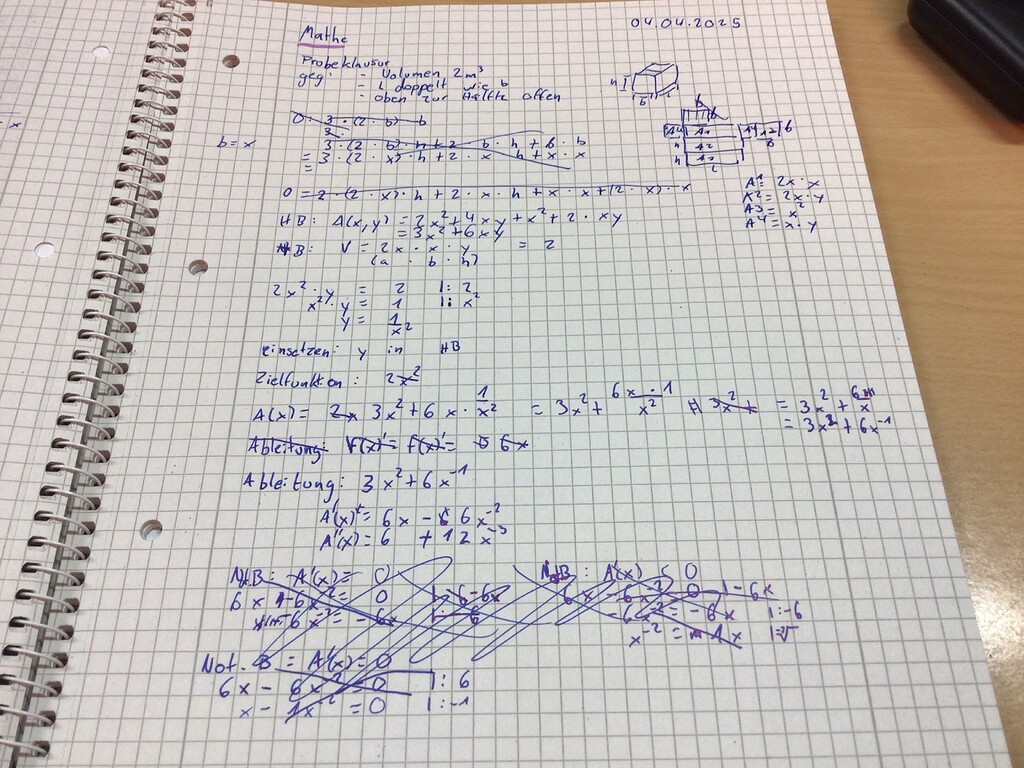 04.04.2025
Mathe
Probeklausur
geg: - Volumen 2m³
- L doppelt wie b
- oben zur Hälfte offen
O: 3 · (2 · b) · b
3 · (2 · b) · h + 2 · b · h + b · b
b = x
= 3 · (2 · x) · h + 2 · x · h + x · x
=
O = 2 · (2 · x) · h + 2 · x · h + x · x + (2 · x) · x
A1 = 2x · x
A2 = 2x · y
A3 = x²
A4 = x · y
HB: A(x,y) = 2x² + 4xy + x² + 2 · xy
= 3x² + 6xy
NB: V = 2x · x · y = 2
(a · b · h)
2x² · y = 2 |: 2
x² · y = 1 |: x²
y = 1/x²
einsetzen: y in HB
Zielfunktion: 2x²
A(x) = 2x 3x² + 6x · 1/x² = 3x² + 6x · 1/x² 3x² + = 3x² + 6/x
= 3x² + 6x⁻¹
Ableitung: f(x)' = 6x
Ableitung: 3x² + 6x⁻¹
A'(x) = 6x - 6x⁻²
A''(x) = 6 + 12x⁻³
NotB: A'(x) = 0
6x - 6x⁻² = 0 |-6x
-6x⁻² = -6x |: -6
NotB: A'(x) = 0
6x - 6x⁻² = 0 |-6x
-6x⁻² = -6x |:-6
x⁻² = 1x |:√
Not. B = A'(x) = 0
6x - 6x⁻² = 0 |: 6
x - 1x⁻² = 0 |:-1